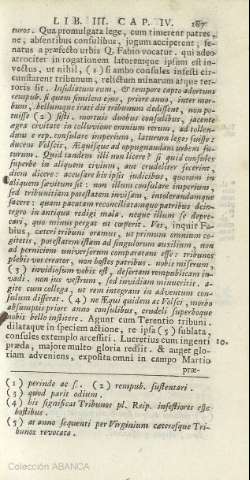 LIB. III. CAP. IV. 167
turos. Qua promulgata lege, cum timerent patres,
ne, absentibus consulibus, jugum acciperent, se-
natus a præfecto urbis Q. Fabio vocatur. qui adeo
atrociter in rogationem latoremque ipsum est in-
vectus, ut nihil, (1) si ambo consules infesti cir-
cumstarent tribunum, relictum minarum atque ter-
roris sit. Insidiatum eum, & tempore capto adortum
rempub. si quem similem ejus, priore anno, inter mor-
bum, bellumque irati dii tribunum dedissent, non po-
tuisse (2) sisti. mortuis duobus consulibus, jacente
ægra civitate in colluvione omnium rerum, ad tollen-
dum e rep. consulare imperium, laturum leges fuisse:
ducem Volscis, Æquisque ad oppugnandam urbem fu-
turum. Quid tandem illi non licere? si quid consules
superbe in aliquem civium, aut crudeliter fecerint,
diem dicere: accusare his ipsis iudicibus, quorum in
aliquem sævitum sit: non illum consulare imperium,
sed tribunitiam potestatem invisam, intolerandamque
facere: quam pacatam reconciliatamque patribus de in-
tegro in antiqua redigi mala. neque illum se depre-
cari, quo minus pergat ut cœperit. Vos, inquit Fa-
bius, ceteri tribuni oramus, ut primum omnium co-
gitetis, potestatem istam ad singulorum auxilium, non
ad perniciem universorum comparatam esse: tribunos
plebis vos creatos, non hostes patribus. nobis miserum,
(3) invidiosum vobis est, desertam rempublicam in-
vadi. non jus vestrum, sed invidiam minueritis. a-
gite cum collega, ut rem integram in adventum con-
sulum differat. (4) ne Æqui quidem ac Volsci, morbo
absumptis priore anno consulibus, crudeli superboque
nobis bello institere. Agunt cum Terentio tribuni.
dilataque in speciem actione, re ipsa (5) sublata,
consules extemplo arcessiti. Lucretius cum ingenti 10.
præda, majore multo gloria rediit. & auget glo-
riam adveniens, exposita omni in campo Martio
præ-
(1) perinde ac si. (2) rempub. sustentari.
(3) quod parit odium.
(4) his significat Tribunos pl. Reip. infestiores esse
hostibus.
(5) at anno sequenti per Virginium ceterosque Tri-
bunos revocata.
Colección ABANCA